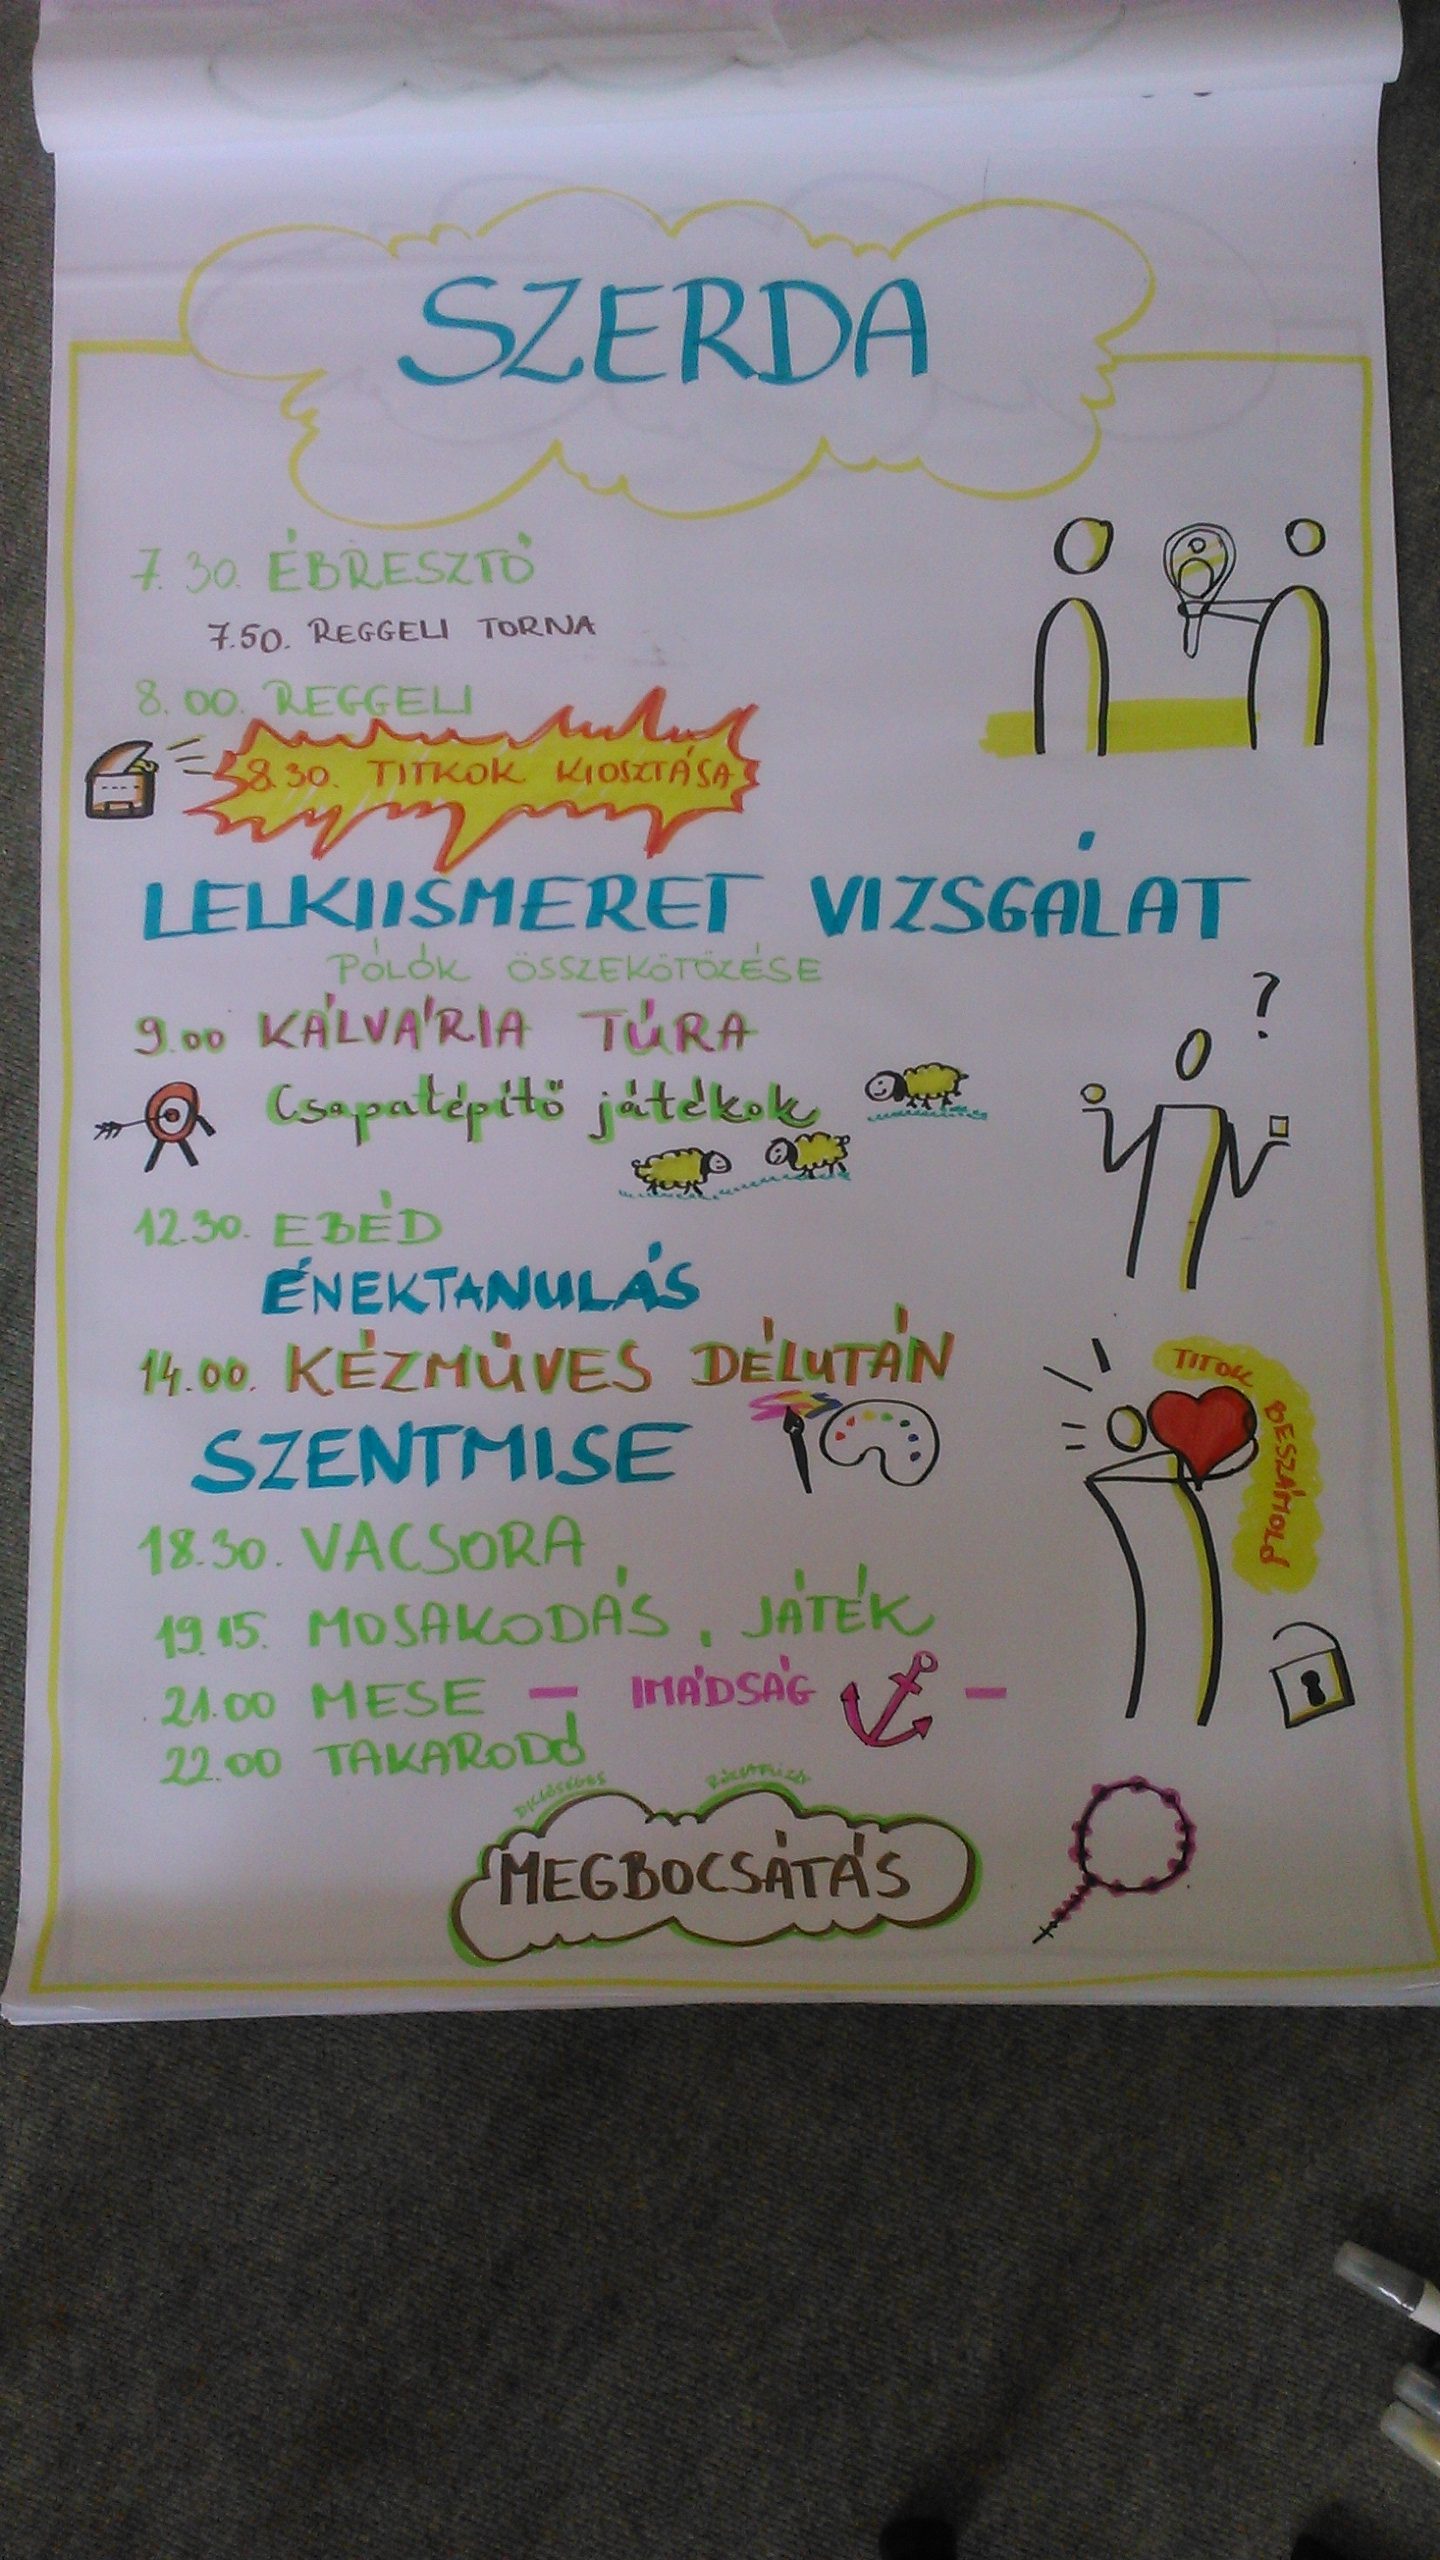 SZERDA
7.30. ÉBRESZTŐ
7.50. REGGELI TORNA
8.00. REGGELI
8.30. TITKOK KIOSZTÁSA
LELKIISMERET VIZSGÁLAT
PÓLÓK ÖSSZEKÖTÖZÉSE
9.00 KÁLVÁRIA TÚRA
?
Csapatépítő játékok
12.30. EBÉD
ÉNEKTANULÁS
14.00. KÉZMŰVES DÉLUTÁN
TITOK BESZÁMOLÓ
SZENTMISE
18.30. VACSORA
19.15. MOSAKODÁS, JÁTÉK
21.00 MESE – IMÁDSÁG –
22.00 TAKARODÓ
MEGBOCSÁTÁS